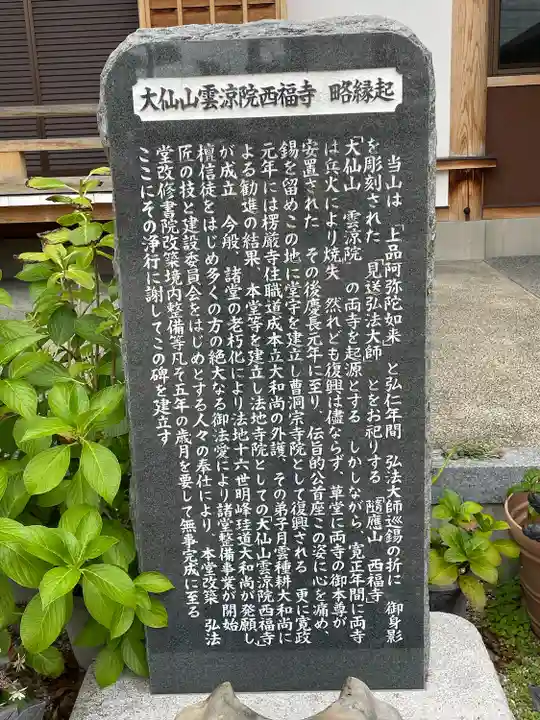 大仙山雲涼院西福寺 略縁起
当山は「上品阿弥陀如来」と弘仁年間 弘法大師巡錫の折に 御身影
を彫刻された「見送弘法大師」とをお祀りする「随應山 西福寺」
「大仙山 雲涼院」の両寺を起源とする しかしながら、寛正年間に両寺
は兵火により焼失 然れども復興は儘ならず、草堂に両寺の御本尊が
安置された その後慶長元年に至り、伝的公首座この姿に心を痛め、
錫を留めこの地に堂宇を建立し曹洞宗寺院として復興される 更に寛政
元年には楞厳寺住職道成本立大和尚の外護、その弟子月雲種耕大和尚に
よる勧進の結果、本堂等を建立し法地寺院としての大仙山雲涼院西福寺
が成立 今般、諸堂の老朽化により法地十六世明峰珪道大和尚が発願し
檀信徒をはじめ多くの方の絶大なる御法愛により諸堂整備事業が開始
匠の技と建設委員会をはじめとする人々の奉仕により、本堂改築 弘法
堂改修書院改築境内整備等凡そ五年の歳月を要して無事完成に至る
ここにその浄行に謝してこの碑を建立す